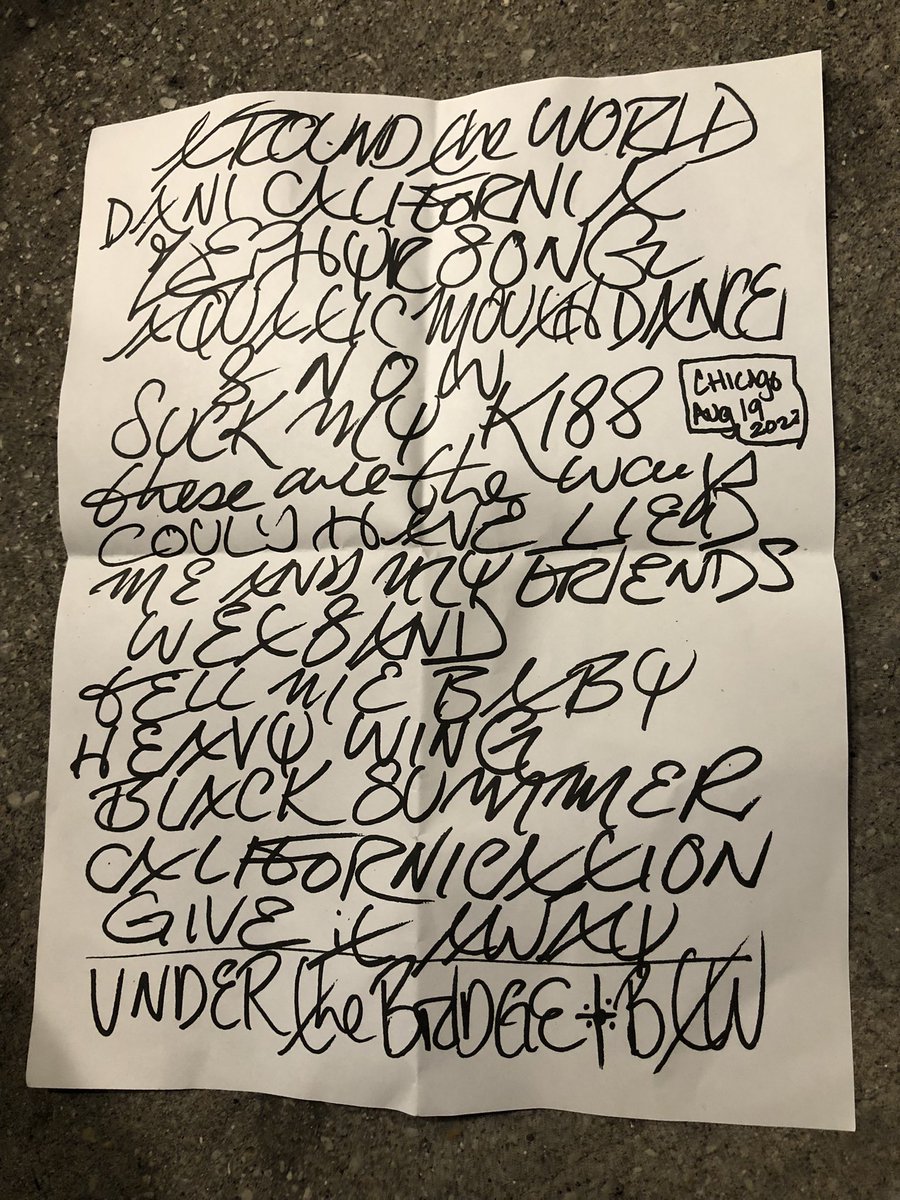 AROUND the WORLD
DANI CALIFORNIA
ZEPHYR SONG
AQUATIC MOUTH DANCE
SNOW
SUCK MY KISS
CHICAGO
AUG 19
2022
these are the ways
COULD HAVE LIED
ME AND MY FRIENDS
WET SAND
tELL ME BABY
HEAVY WING
BLACK SUMMER
CALIFORNICATION
GIVE it AWAY
UNDER the BRIDGE + BTW